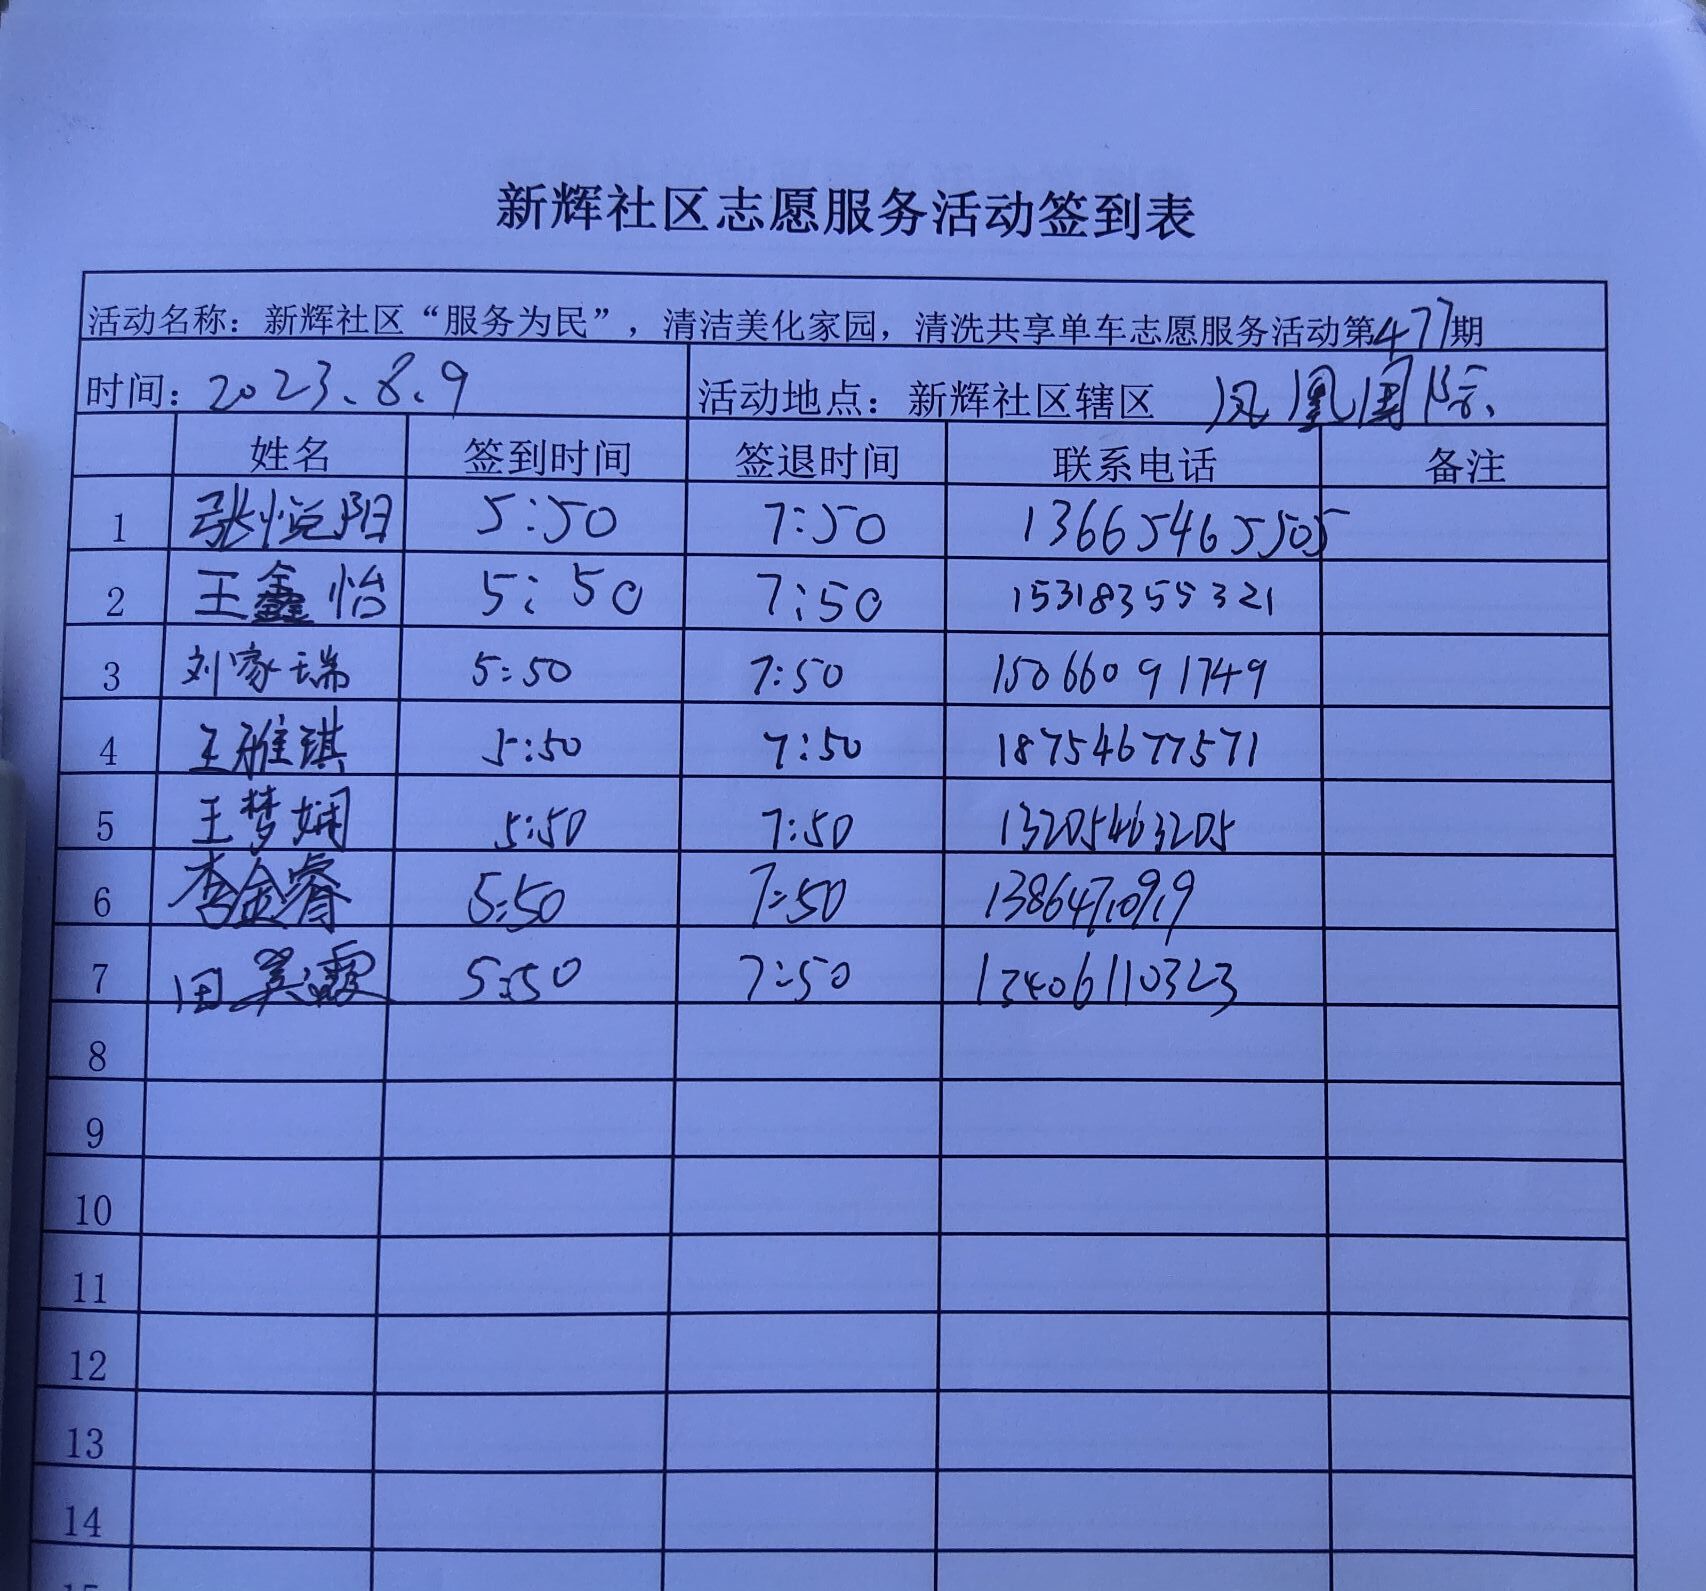 新辉社区志愿服务活动签到表
活动名称：新辉社区“服务为民”，清洁美化家园，清洗共享单车志愿服务活动第477期
时间：2023.8.9 活动地点：新辉社区辖区 凤凰国际
姓名 签到时间 签退时间 联系电话 备注
1 张悦阳 5:50 7:50 13665465505
2 王鑫怡 5:50 7:50 15318355321
3 刘家瑞 5:50 7:50 15066091749
4 王雅琪 5:50 7:50 18754677571
5 王梦娴 5:50 7:50 13205463205
6 李金睿 5:50 7:50
7 田美霞 5:50 7:50 13406110323
8
9
10
11
12
13
14
15